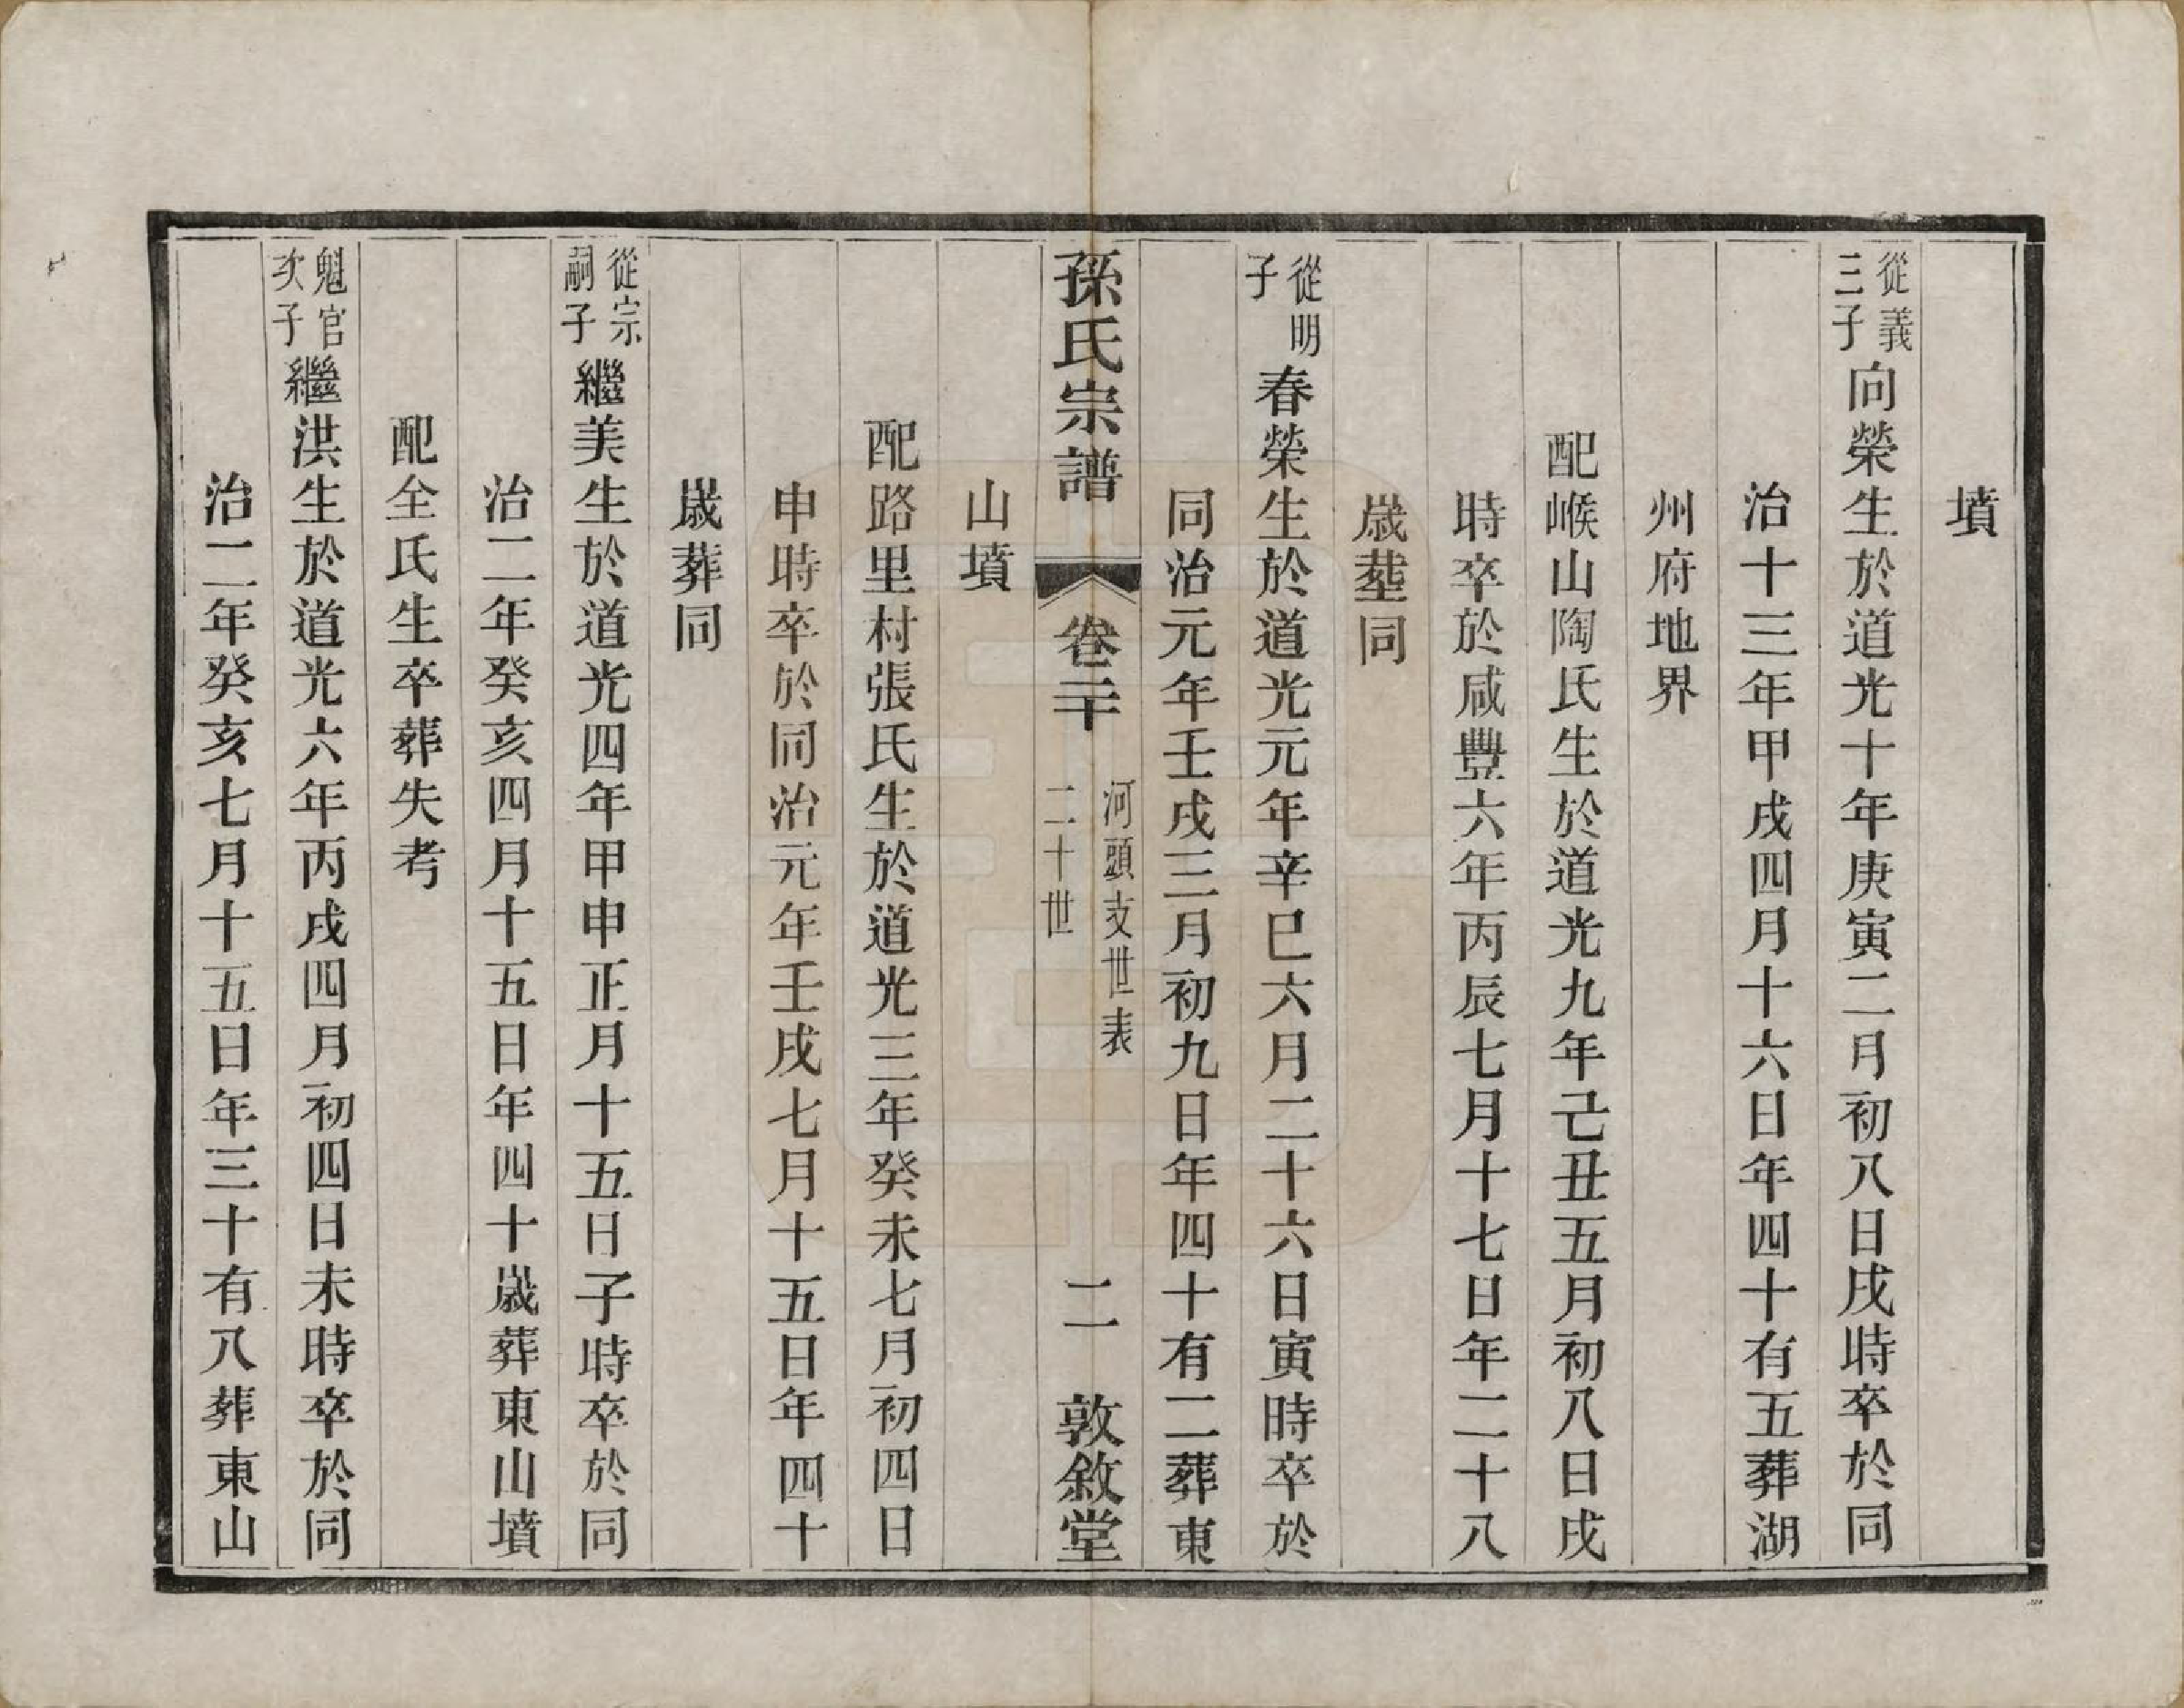 墳
從義三子向榮生於道光十年庚寅二月初八日戌時卒於同
治十三年甲戌四月十六日年四十有五葬湖
州府地界
配㟅山陶氏生於道光九年己丑五月初八日戌
時卒於咸豐六年丙辰七月十七日年二十八
歲塟同
從明子春榮生於道光元年辛巳六月二十六日寅時卒於
同治元年壬戌三月初九日年四十有二葬東
孫氏宗譜 卷二十 河頭支世表 二十世 二 敦敘堂
山墳
配路里村張氏生於道光三年癸未七月初四日
申時卒於同治元年壬戌七月十五日年四十
歲葬同
從宗嗣子繼美生於道光四年甲申正月十五日子時卒於同
治二年癸亥四月十五日年四十歲葬東山墳
配全氏生卒葬失考
魁官次子繼洪生於道光六年丙戌四月初四日未時卒於同
治二年癸亥七月十五日年三十有八葬東山